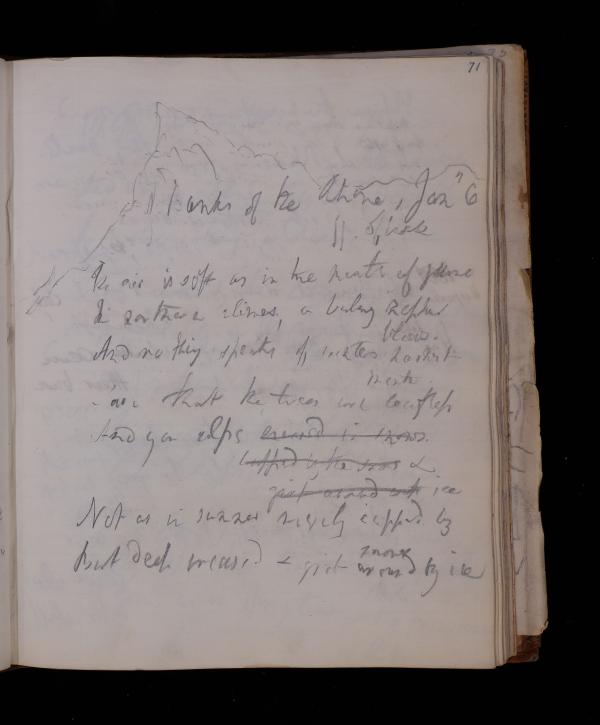 71
Banks of the Rhone, Jany 6
The air is soft as in the month of June
In northern climes, a balmy zephyr
blows.
And nothing speaks of winters harshest
month
save that the trees are leafless
And yon alps encased in snows
capped by the snows &
girt around with ice
Not as in summer merely capped by
snows
But deep encased & girt around by ice